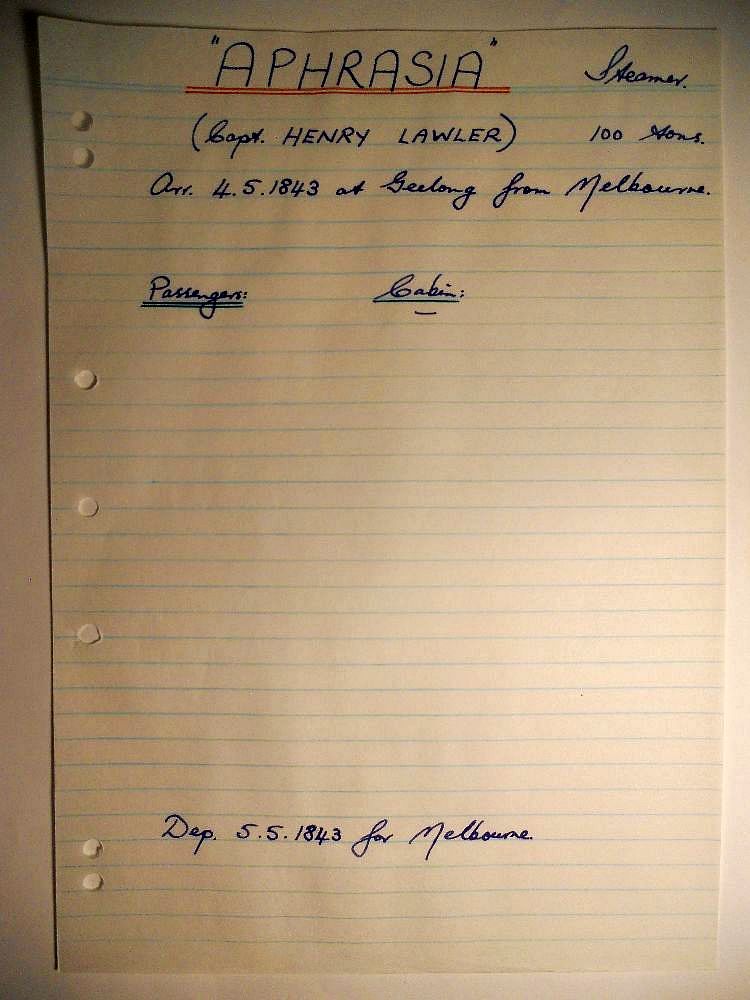 "APHRASIA" Steamer.
(Capt. HENRY LAWLER) 100 tons.
Arr. 4.5.1843 at Geelong from Melbourne.
Passengers: Cabin:
—
Dep. 5.5.1843 for Melbourne.